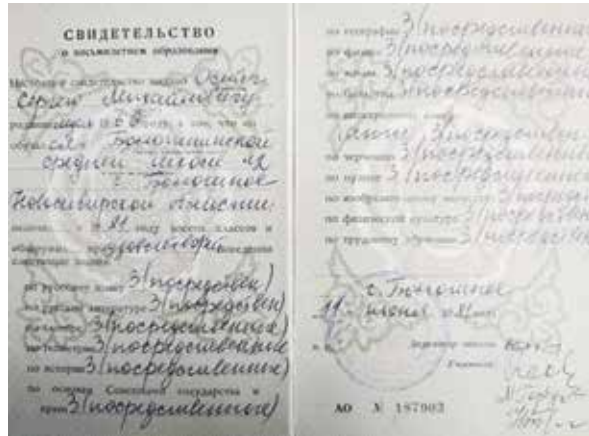 СВИДЕТЕЛЬСТВО
о восьмилетнем образовании
Настоящее свидетельство выдано
Сергею Михайловичу
в том, что он
обучался в Болотнинской
средней школе №2
г. Болотное
Новосибирской области
окончил в 1981 году восемь классов и
обнаружил при поведении
следующие знания:
по русскому языку 3 (посредствен)
по русской литературе 3 (посредствен)
по алгебре 3 (посредственно)
по геометрии 3 (посредственно)
по истории 3 (посредственно)
по основам Советского государства и
права 3 (посредственно)
по географии 3 (посредственно
по физике 3 (посредственно
по химии 3 (посредственно
по биологии 3 (посредственно
по иностранному языку
3 (посредствен
по черчению 3 (посредственно
по музыке 3 (посредственно
по изобразительному искусству 3 (посредст
по физической культуре 3 (посредствен
по трудовому обучению 3 (посредствен
г. Болотное
11 июня 1981 г.
М. П.
Директор школы
Учителя:
АО № 187903